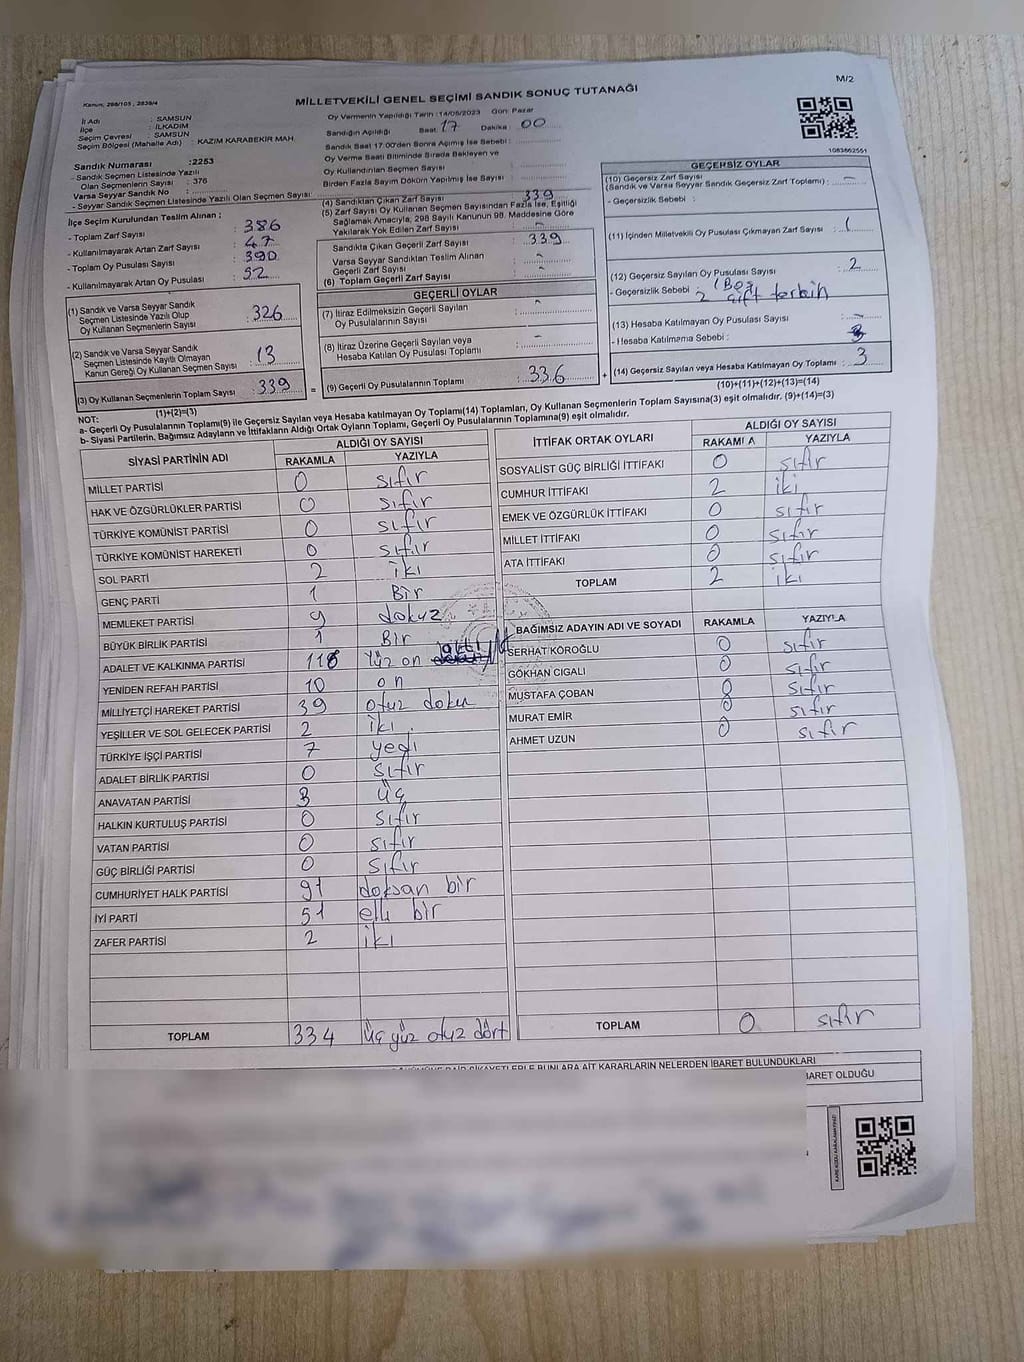 M/2
Kanun, 298/105, 2839/4
MİLLETVEKİLİ GENEL SEÇİMİ SANDIK SONUÇ TUTANAĞI
İl Adı : SAMSUN
İlçe : İLKADIM
Seçim Çevresi : SAMSUN
Seçim Bölgesi (Mahalle Adı) : KAZIM KARABEKİR MAH.
Sandık Numarası :2253
- Sandık Seçmen Listesinde Yazılı
Olan Seçmenlerin Sayısı : 376
Varsa Seyyar Sandık No :
- Seyyar Sandık Seçmen Listesinde Yazılı Olan Seçmen Sayısı:
İlçe Seçim Kurulundan Teslim Alınan ;
- Toplam Zarf Sayısı : 386
- Kullanılmayarak Artan Zarf Sayısı : 47
- Toplam Oy Pusulası Sayısı : 390
- Kullanılmayarak Artan Oy Pusulası : 52
(1) Sandık ve Varsa Seyyar Sandık
Seçmen Listesinde Yazılı Olup
Oy Kullanan Seçmenlerin Sayısı : 326
(2) Sandık ve Varsa Seyyar Sandık
Seçmen Listesinde Kayıtlı Olmayan
Kanun Gereği Oy Kullanan Seçmen Sayısı : 13
(3) Oy Kullanan Seçmenlerin Toplam Sayısı : 339
(1)+(2)=(3)
Oy Vermenin Yapıldığı Tarih :14/05/2023 Gün: Pazar
Sandığın Açıldığı Saat: 17 Dakika : 00
Sandık Saat 17.00'den Sonra Açılmış İse Sebebi :
Oy Verme Saati Bitiminde Sırada Bekleyen ve
Oy Kullandırılan Seçmen Sayısı :
Birden Fazla Sayım Döküm Yapılmış İse Sayısı :
(4) Sandıktan Çıkan Zarf Sayısı : 339
(5) Zarf Sayısı Oy Kullanan Seçmen Sayısından Fazla İse, Eşitliği
Sağlamak Amacıyla, 298 Sayılı Kanunun 98. Maddesine Göre
Yakılarak Yok Edilen Zarf Sayısı : -
Sandıkta Çıkan Geçerli Zarf Sayısı : 339
Varsa Seyyar Sandıktan Teslim Alınan
Geçerli Zarf Sayısı : -
(6) Toplam Geçerli Zarf Sayısı : -
GEÇERLİ OYLAR
(7) İtiraz Edilmeksizin Geçerli Sayılan
Oy Pusulalarının Sayısı : -
(8) İtiraz Üzerine Geçerli Sayılan veya
Hesaba Katılan Oy Pusulası Toplamı : -
= (9) Geçerli Oy Pusulalarının Toplamı : 336 +
1083662551
GEÇERSİZ OYLAR
(10) Geçersiz Zarf Sayısı
(Sandık ve Varsa Seyyar Sandık Geçersiz Zarf Toplamı) : -
- Geçersizlik Sebebi :
(11) İçinden Milletvekili Oy Pusulası Çıkmayan Zarf Sayısı : 1
(12) Geçersiz Sayılan Oy Pusulası Sayısı : 2
- Geçersizlik Sebebi : 2
(13) Hesaba Katılmayan Oy Pusulası Sayısı : -
- Hesaba Katılmama Sebebi :
(14) Geçersiz Sayılan veya Hesaba Katılmayan Oy Toplamı : 3
(10)+(11)+(12)+(13)=(14)
NOT:
a- Geçerli Oy Pusulalarının Toplamı(9) ile Geçersiz Sayılan veya Hesaba katılmayan Oy Toplamı(14) Toplamları, Oy Kullanan Seçmenlerin Toplam Sayısına(3) eşit olmalıdır. (9)+(14)=(3)
b- Siyasi Partilerin, Bağımsız Adayların ve İttifakların Aldığı Ortak Oyların Toplamı, Geçerli Oy Pusulalarının Toplamına(9) eşit olmalıdır.
SİYASİ PARTİNİN ADI ALDIĞI OY SAYISI
RAKAMLA YAZIYLA
MİLLET PARTİSİ 0 sıfır
HAK VE ÖZGÜRLÜKLER PARTİSİ 0 sıfır
TÜRKİYE KOMÜNİST PARTİSİ 0 sıfır
TÜRKİYE KOMÜNİST HAREKETİ 0 sıfır
SOL PARTİ 2 iki
GENÇ PARTİ 1 Bir
MEMLEKET PARTİSİ 9 dokuz
BÜYÜK BİRLİK PARTİSİ 1 Bir
ADALET VE KALKINMA PARTİSİ 116 Yüz on altı
YENİDEN REFAH PARTİSİ 10 on
MİLLİYETÇİ HAREKET PARTİSİ 39 otuz dokuz
YEŞİLLER VE SOL GELECEK PARTİSİ 2 iki
TÜRKİYE İŞÇİ PARTİSİ 7 yedi
ADALET BİRLİK PARTİSİ 0 sıfır
ANAVATAN PARTİSİ 3 üç
HALKIN KURTULUŞ PARTİSİ 0 sıfır
VATAN PARTİSİ 0 sıfır
GÜÇ BİRLİĞİ PARTİSİ 0 sıfır
CUMHURİYET HALK PARTİSİ 91 doksan bir
İYİ PARTİ 51 elli bir
ZAFER PARTİSİ 2 iki
TOPLAM 334 üç yüz otuz dört
İTTİFAK ORTAK OYLARI ALDIĞI OY SAYISI
RAKAMLA YAZIYLA
SOSYALİST GÜÇ BİRLİĞİ İTTİFAKI 0 sıfır
CUMHUR İTTİFAKI 2 iki
EMEK VE ÖZGÜRLÜK İTTİFAKI 0 sıfır
MİLLET İTTİFAKI 0 sıfır
ATA İTTİFAKI 0 sıfır
TOPLAM 2 iki
BAĞIMSIZ ADAYIN ADI VE SOYADI RAKAMLA YAZIYLA
SERHAT KÖROĞLU 0 sıfır
GÖKHAN CIGALI 0 sıfır
MUSTAFA ÇOBAN 0 sıfır
MURAT EMİR 0 sıfır
AHMET UZUN 0 sıfır
TOPLAM 0 sıfır
BUNLARA AİT KARARLARIN NELERDEN İBARET BULUNDUKLARI
İBARET OLDUĞU